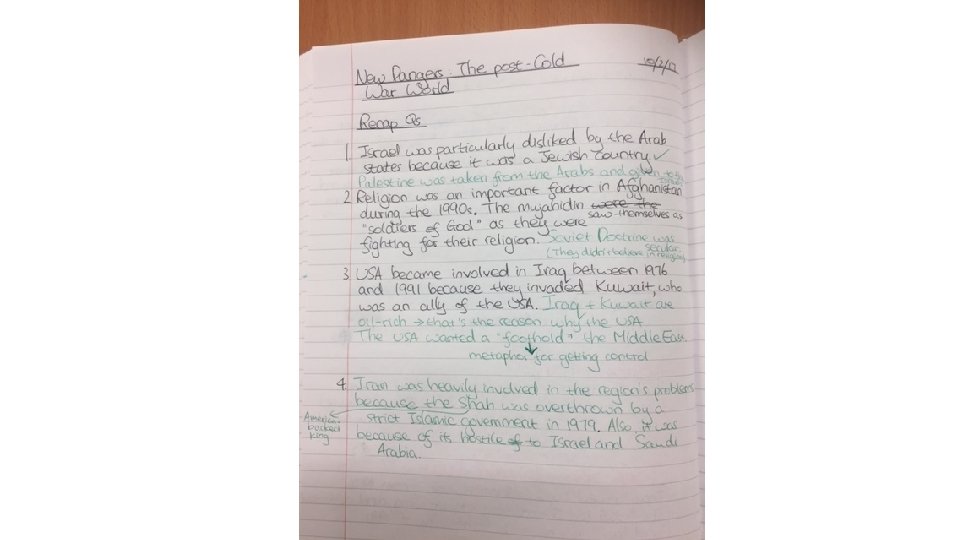 New Dangers: The post-Cold
War World
Recap Qs
1. Israel was particularly disliked by the Arab
states because it was a Jewish country ✓
Palestine was taken from the Arabs and given to the
2. Religion was an important factor in Afghanistan
during the 1990s. The mujahidin were the saw themselves as
"soldiers of God" as they were
fighting for their religion. Soviet Doctrine was
secular
(They didn't believe in religion)
3. USA became involved in Iraq between 1976
and 1991 because they invaded Kuwait, who
was an ally of the USA. Iraq + Kuwait are
oil-rich → that's the reason why the USA
The USA wanted a "foothold" the Middle East.
metaphor for getting control
4. Iran was heavily involved in the region's problems
because the Shah was overthrown by a
American
backed
king
strict Islamic government in 1979. Also, it was
because of its hostile of to Israel and Saudi
Arabia.